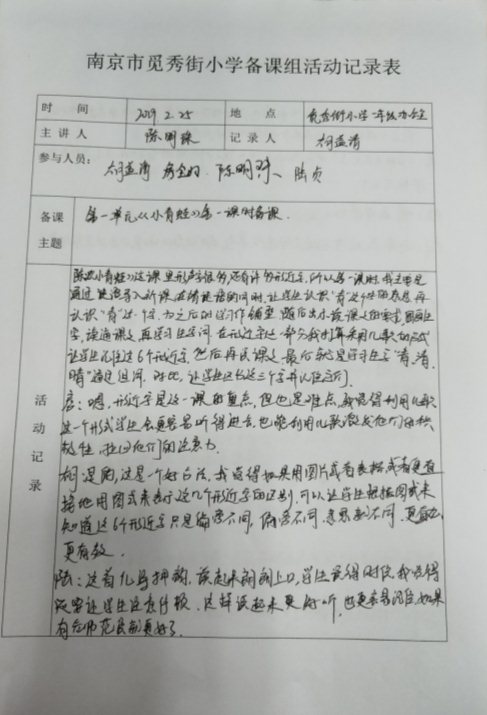 南京市觅秀街小学备课组活动记录表
时 间 2019.2.25 地 点 觅秀街小学一年级办公室
主讲人 陈明珠 记录人 胡益清
参与人员: 胡益清 陈明珠 陆贞
备课主题 第一单元《小青蛙》第一课时备课.
活动记录
陈:《小青蛙》这课里形声字很多,还有许多形近字,所以第一课时,我主要是
通过 导入新课 的同时,让学生认识"青"这个字的意思,再
认识"青"这个字,为之后的学习作铺垫.随后出示读课文的要求,圈画生
字,读通课文,再学习生字词.在形近字这一部分我打算采用儿歌的形式
让学生记住这6个形近字.然后再读课文.最后就是学习生字"青、清、
晴"通过组词、对比,让学生区分这三个字并记住它们.
:嗯,形近字是这一课的重点,但也是难点,我觉得利用儿歌
这一个形式学生会更容易听得进去,也能利用儿歌激发他们的积
极性,拉回他们的注意力.
胡:是的,这是个好办法,我觉得如果用图片或者表格,或者更直
接地用图式来表示这几个形近字的区别,可以让学生根据图式来
知道这6个形近字只是偏旁不同,偏旁不同,意思就不同,更直观,
更有效.
陆:这首儿歌押韵,读起来朗朗上口,学生读得时候,我觉得
应该让学生注意停顿.这样读起来更好听,也更容易记住,如果
有老师范读就更好了.